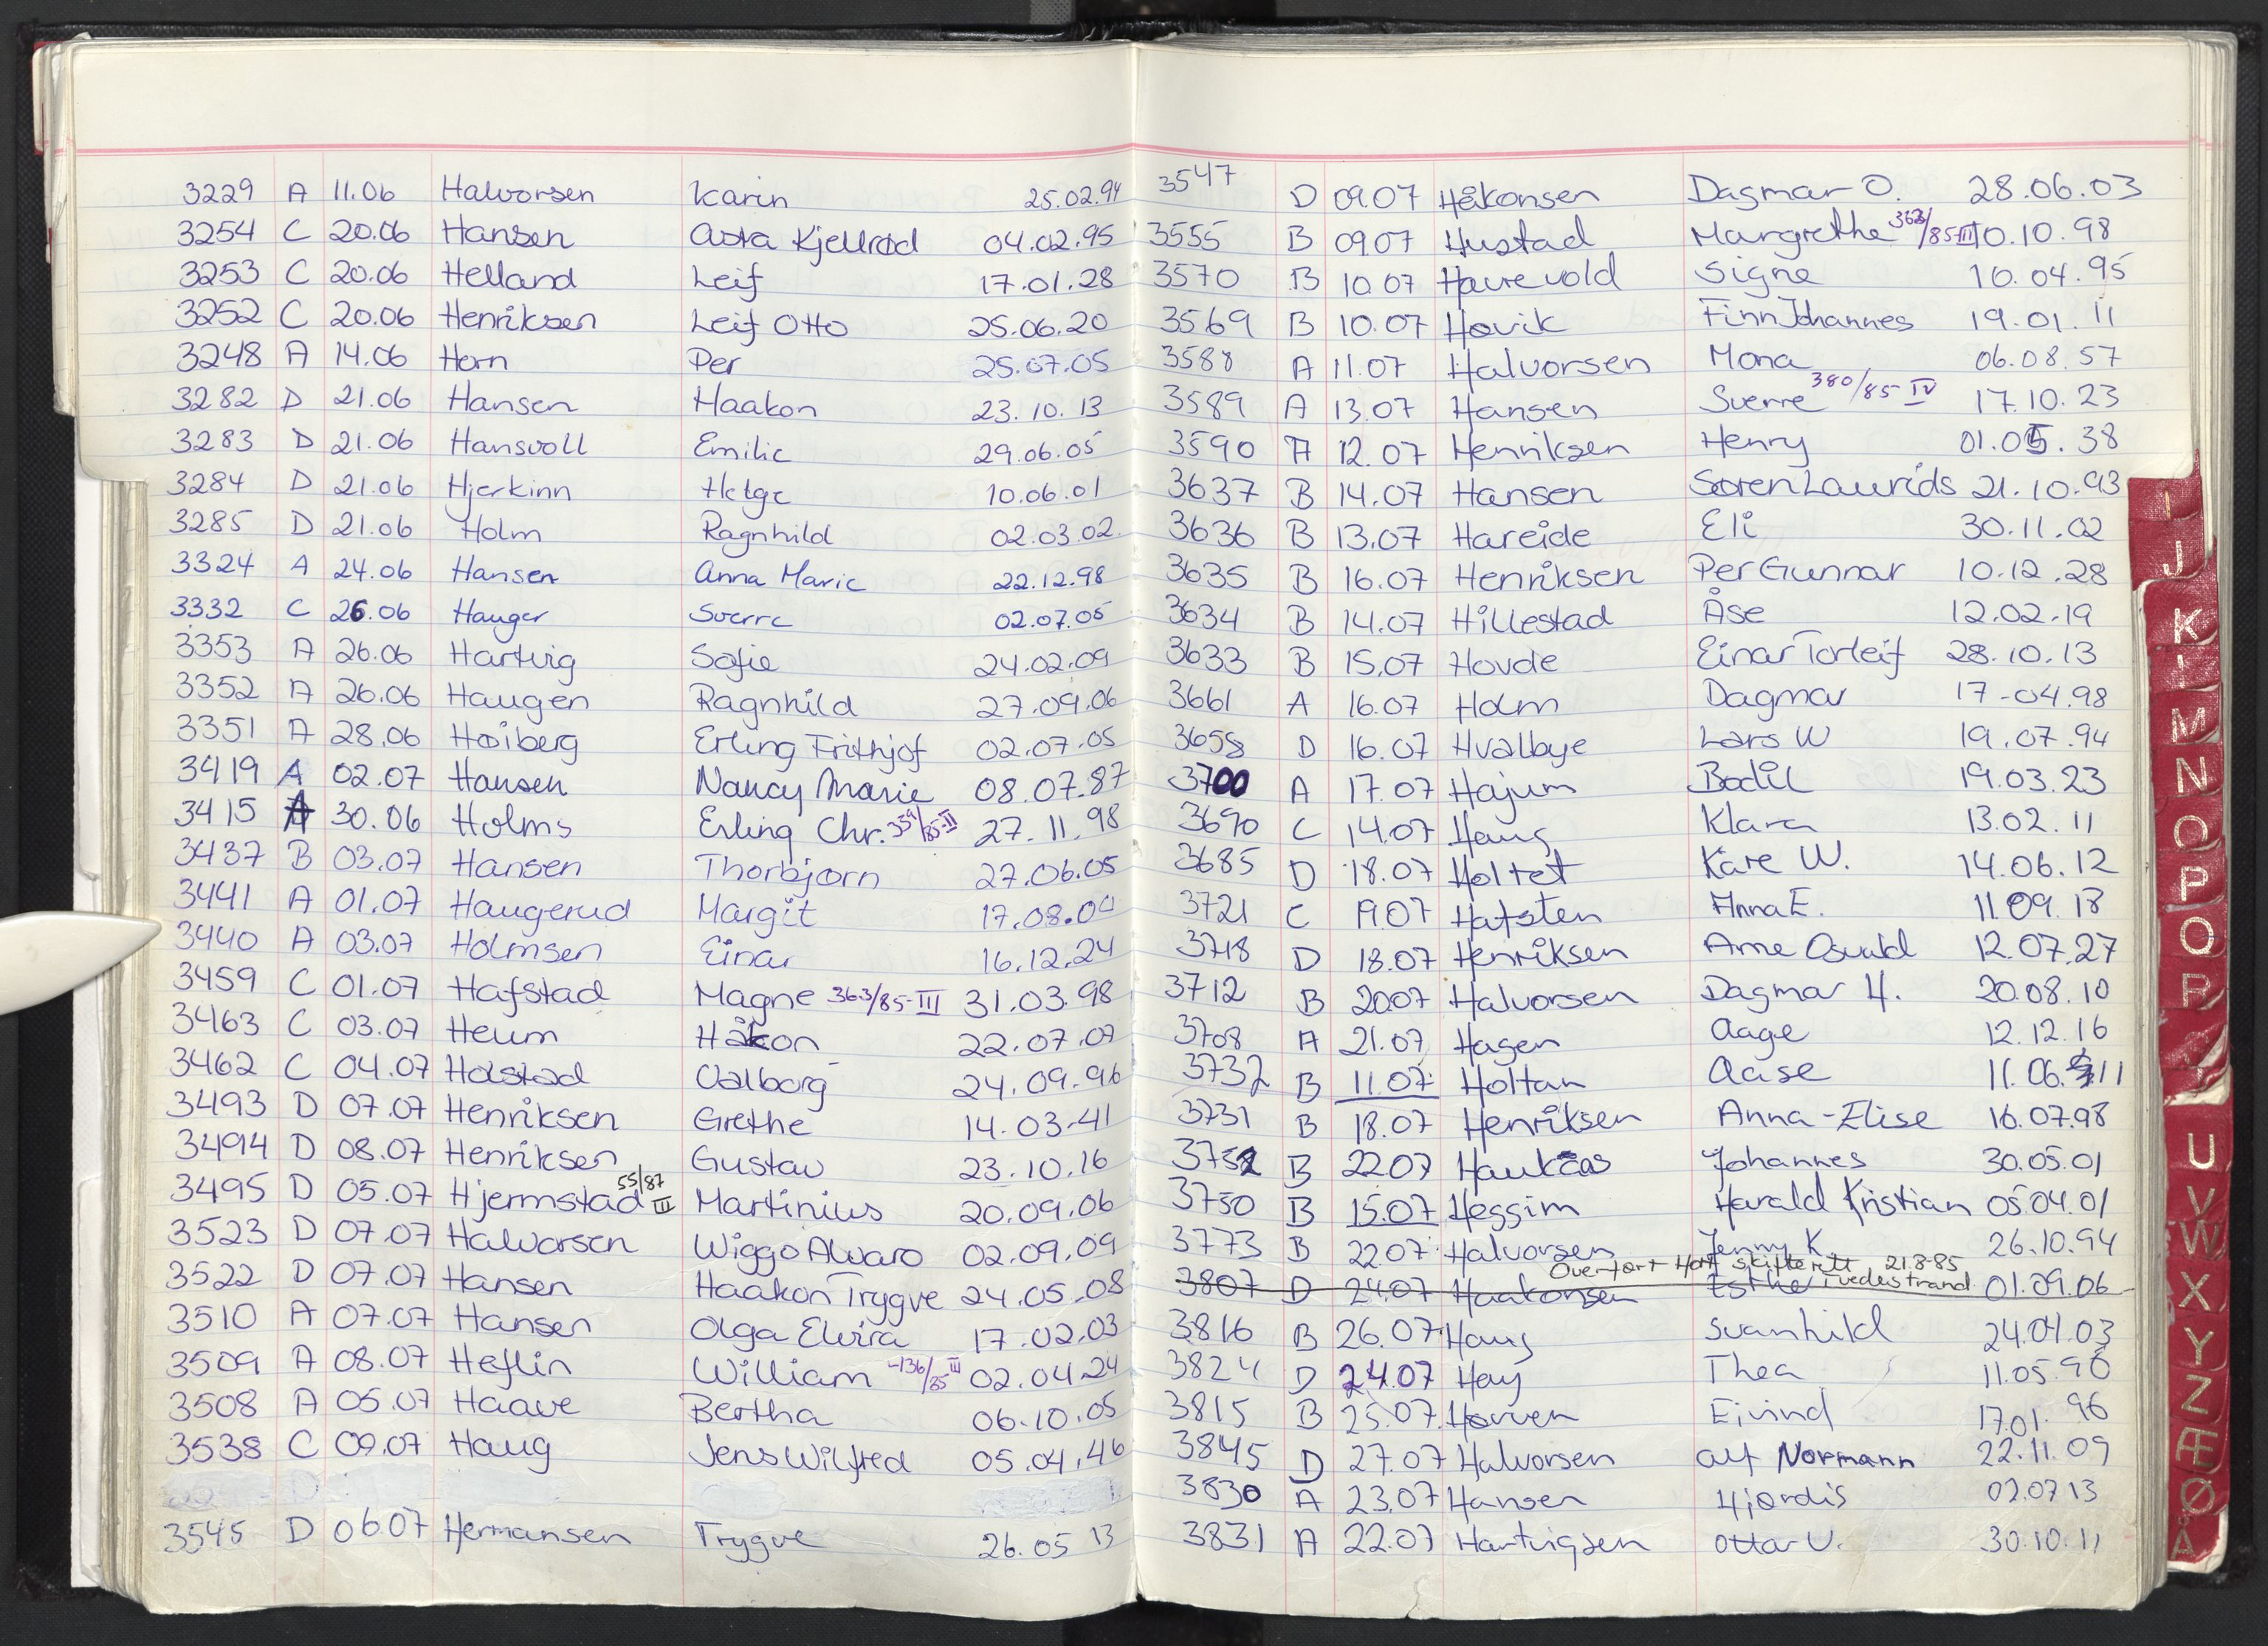 3229 A 11.06 Halvorsen Karin 25.02.94
3254 C 20.06 Hansen Asta Kjellrød 04.02.95
3253 C 20.06 Helland Leif 17.01.28
3252 C 20.06 Henriksen Leif Otto 25.06.20
3248 A 14.06 Horn Per 25.07.05
3282 D 21.06 Hansen Haakon 23.10.13
3283 D 21.06 Hansvoll Emilie 29.06.05
3284 D 21.06 Hjerkinn Helge 10.06.01
3285 D 21.06 Holm Ragnhild 02.03.02
3324 A 24.06 Hansen Anna Marie 22.12.98
3332 C 26.06 Hauger Sverre 02.07.05
3353 A 26.06 Hartvig Sofie 24.02.09
3352 A 26.06 Haugen Ragnhild 27.09.06
3351 A 28.06 Høiberg Erling Frithjof 02.07.05
3419 A 02.07 Hansen Nancy Marie 08.07.87
3415 A 30.06 Holms Erling Chr. 359/85-II 27.11.98
3437 B 03.07 Hansen Thorbjørn 27.06.05
3441 A 01.07 Haugerud Margit 17.08.04
3440 A 03.07 Holmsen Einar 16.12.24
3459 C 01.07 Hafstad Magne 363/85-III 31.03.98
3463 C 03.07 Heum Håkon 22.07.07
3462 C 04.07 Holstad Valborg 24.09.96
3493 D 07.07 Henriksen Grethe 14.03-41
3494 D 08.07 Henriksen Gustav 23.10.16
3495 D 05.07 Hjermstad 55/87 III Martinius 20.09.06
3523 D 07.07 Halvorsen Wiggo Alvaro 02.09.09
3522 D 07.07 Hansen Haakon Trygve 24.05.08
3510 A 07.07 Hansen Olga Elvira 17.02.03
3509 A 08.07 Heflin William -136/85 III 02.04.24
3508 A 05.07 Haave Bertha 06.10.05
3538 C 09.07 Haug Jens Wilfred 05.04.46
3545 D 06.07 Hermansen Trygve 26.05 13
3547 D 09.07 Håkonsen Dagmar O. 28.06.03
3555 B 09.07 Hustad Margrethe 363/85-III 10.10.98
3570 B 10.07 Haurevold Signe 16.04.95
3569 B 10.07 Høvik Finn Johannes 19.01.11
3588 A 11.07 Halvorsen Mona 06.08.57
3589 A 13.07 Hansen Sverre 380/85-IV 17.10.23
3590 A 12.07 Henriksen Henry 01.05.38
3637 B 14.07 Hansen Søren Laurids 21.10.93
3636 B 13.07 Hareide Eli 30.11.02
3635 B 16.07 Henriksen Per Gunnar 10.12.28
3634 B 14.07 Hillestad Åse 12.02.19
3633 B 15.07 Hovde Einar Torleif 28.10.13
3661 A 16.07 Holm Dagmar 17-04.98
3658 D 16.07 Hvalbye Lars W 19.07.94
3700 A 17.07 Hajum Bodil 19.03.23
3690 C 14.07 Haug Klara 13.02.11
3685 D 18.07 Holtet Kåre W. 14.06.12
3721 C 19.07 Hafsten Anna E. 11.09.18
3718 D 18.07 Henriksen Arne Osvald 12.07.27
3712 B 20.07 Halvorsen Dagmar H. 20.08.10
3708 A 21.07 Hagen Aage 12.12.16
3732 B 11.07 Holtan Aase 11.06.11
3731 B 18.07 Henriksen Anna-Elise 16.07.98
3752 B 22.07 Haukaas Johannes 30.05.01
3750 B 15.07 Heggim Harald Kristian 05.04.01
3773 B 22.07 Halvorsen Jenny K. 26.10.94
Overført Holt skifterett 21.8-85
Tvedestrand
3807 D 24.07 Haakonsen Esther 01.09.06
3816 B 26.07 Haug Svanhild 24.01.03
3824 D 24.07 Høy Thea 11.05.96
3815 B 25.07 Hørven Eivind 17.01.96
3845 D 27.07 Halvorsen Alf Normann 22.11.09
3830 A 23.07 Hansen Hjørdis 02.07 13
3831 A 22.07 Hartvigsen Ottar U. 30.10.11
I
J
K
L
M
N
O
P
Q
R
U
V
W
X
Y
Z
Æ
Ø
Å